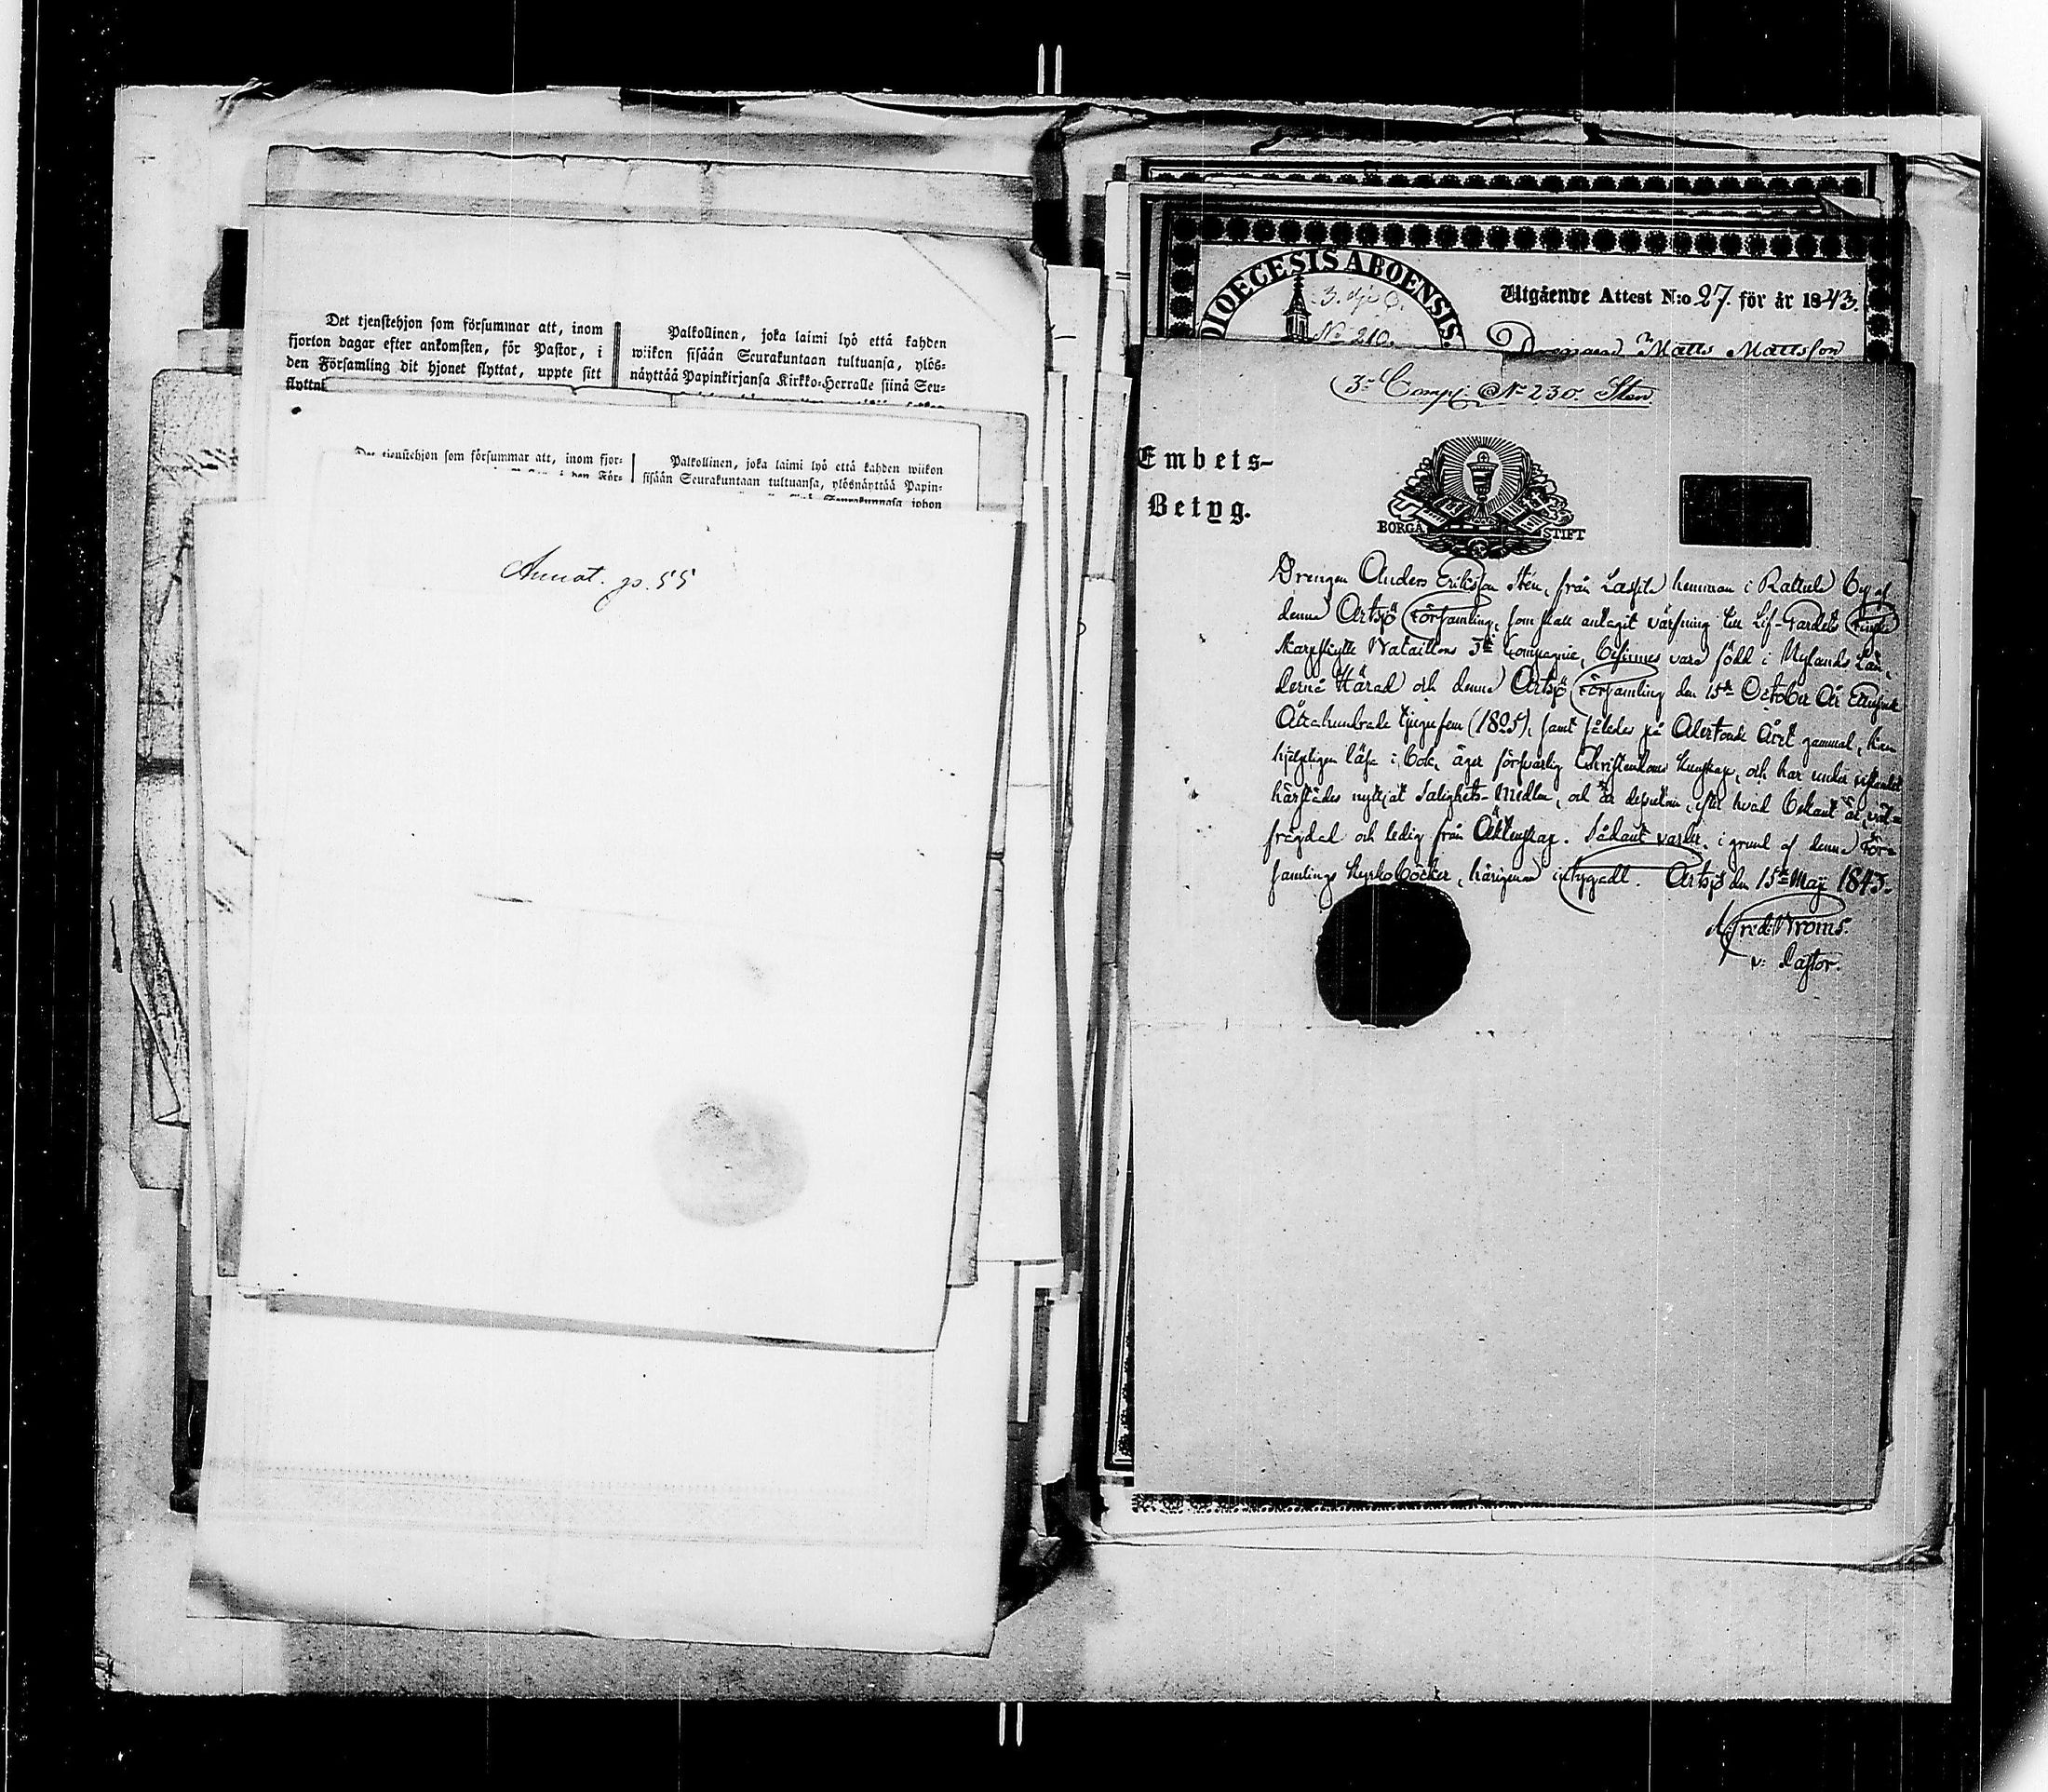 Det tjenstehjon som försummar att, inom
fjorton dagar efter ankomsten, för Pastor, i
den Församling dit hjonet flyttat, uppte sitt
flyttni
Palkollinen, joka laimi lyö että kahden
wiikon sisään Seurakuntaan tultuansa, ylös-
näyttää Papinkirjansa Kirkko-Herralle siinä Seu-
Det tjenstehjon som försummar att, inom fjor-
i den För-
Palkollinen, joka laimi lyö että kahden wiikon
sisään Seurakuntaan tultuansa, ylösnäyttää Papin-
Seurakunnasa johon
Annot. p. 55
DIOECESIS ABOENSIS
3.
No 210.
Utgående Attest N:o 27. för år 1843.
Matts Mattsson
3e Comp. No 230. Sten
Embets-
Betyg.
BORGÅ STIFT
Drengen Anders Eriksson Stén, från Lassila hemman i Rattula By af
denna Artsjö Församling, som skall antagit värfning till Lif-Gardets Finska
Skarpskytte Bataillons 3die Compagnie, befinnes vara född i Nylands Län,
Härad och denna Artsjö Församling den 15de October År Ettusend
Åttahundrade tjugufem (1825), samt således på Adertonde Året gammal, kan
hjelpligen läsa i bok, äger försvarlig Christendoms kunskap, och har under vistandet
härstädes nyttjat Salighets-Medlen, och är efter hvad bekant är, väl-
frägdad och ledig från Äktenskap. Sådant varder, i grund af denna För-
samlings Kyrkoböcker, härigenom intygadt. Artsjö den 15de Maji 1843.
v: Pastor.